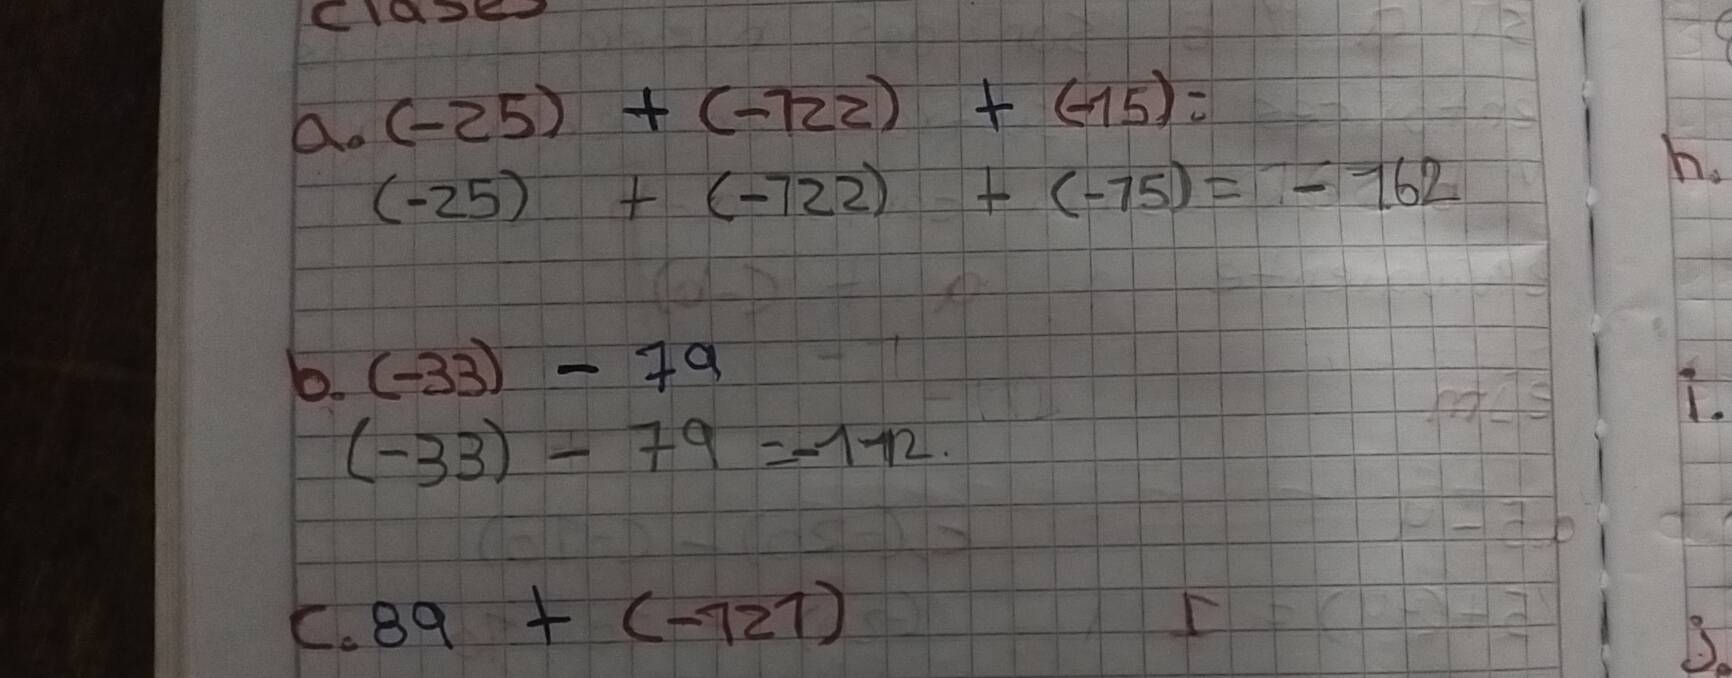 clases
a. (-25) + (-122) + (-15) =
(-25) + (-122) + (-15) = - 162
b. (-33) - 79
(-33) - 79 = -112.
c. 89 + (-121)
h.
i.
j.